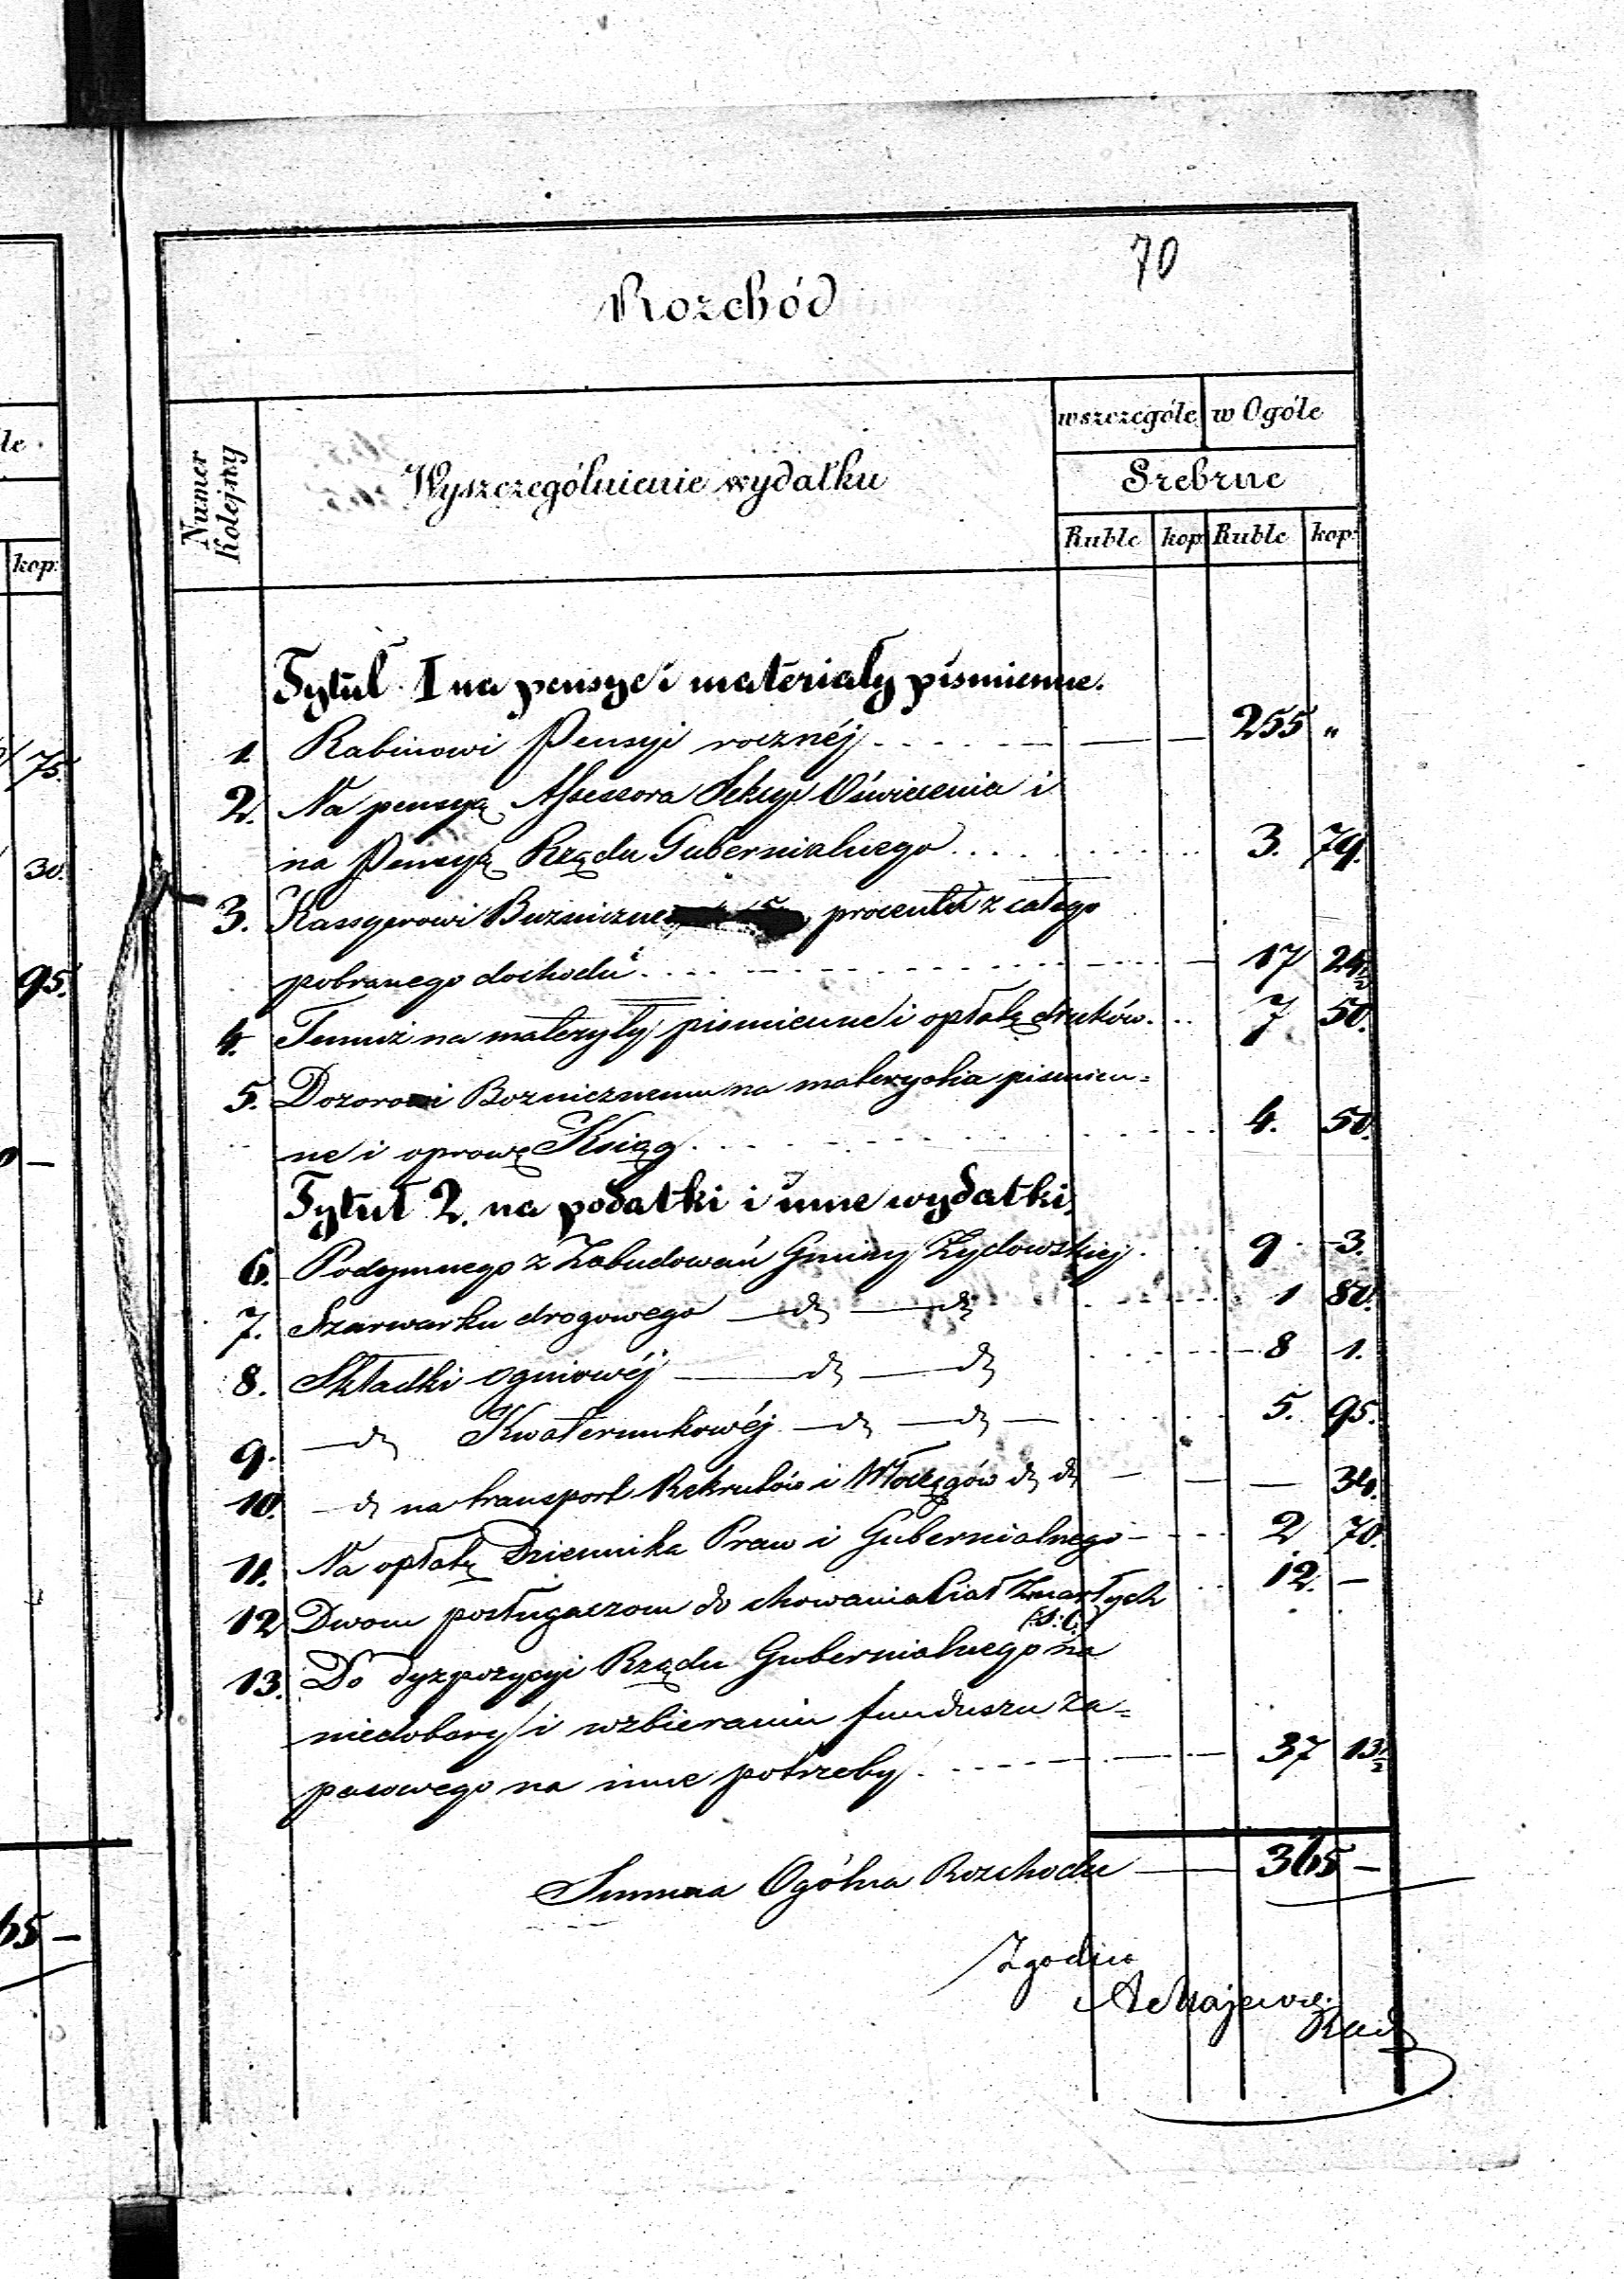 70
Rozchód
Numer Kolejny
Wyszczególnienie wydatku
w szczególe
w Ogóle
Srebrne
Ruble kop Ruble kop:
Tytuł I na pensye i materiały písmienne.
1. Rabinowi Pensyi rocznéj 255 "
2. Na pensyą Assessora Sekcyi Oświecenia i
na Pensyą Rządu Gubernialnego 3. 79.
3. Kassyerowi Bużniczne procentu z całego
pobranego dochodu 17 24½
4. Temuż na materyały pismienne i opłatę druków 7 50.
5. Dozorowi Boznicznemu na materyalia pismien=
ne i oprawę Ksiąg 4. 50.
Tytuł 2. na podatki i inne wydatki.
6. Podymnego z Zabudowań Gminy Żydowskiej 9 3.
7. Szarwarku drogowego — dº — dº 1 80.
8. Składki ogniowéj — dº — dº 8 1.
9. — dº Kwaterunkowéj — dº — dº — 5. 95.
10. — dº na transport Rekrutów i Włoczęgów dº dº — — — 34.
11. Na opłatę Dziennika Praw i Gubernialnego 2 70.
12 Dwom posługaczom do chowania Ciał Zmarłych 12. —
13. Do dyzpozycyi Rządu Gubernialnego na
niedobory i wzbieraniu funduszu za=
pasowego na inne potrzeby 37 13½
Summa Ogólna Rozchodu — 365 —
Zgodno
le
kop:
75.
30.
95.
—
65 —